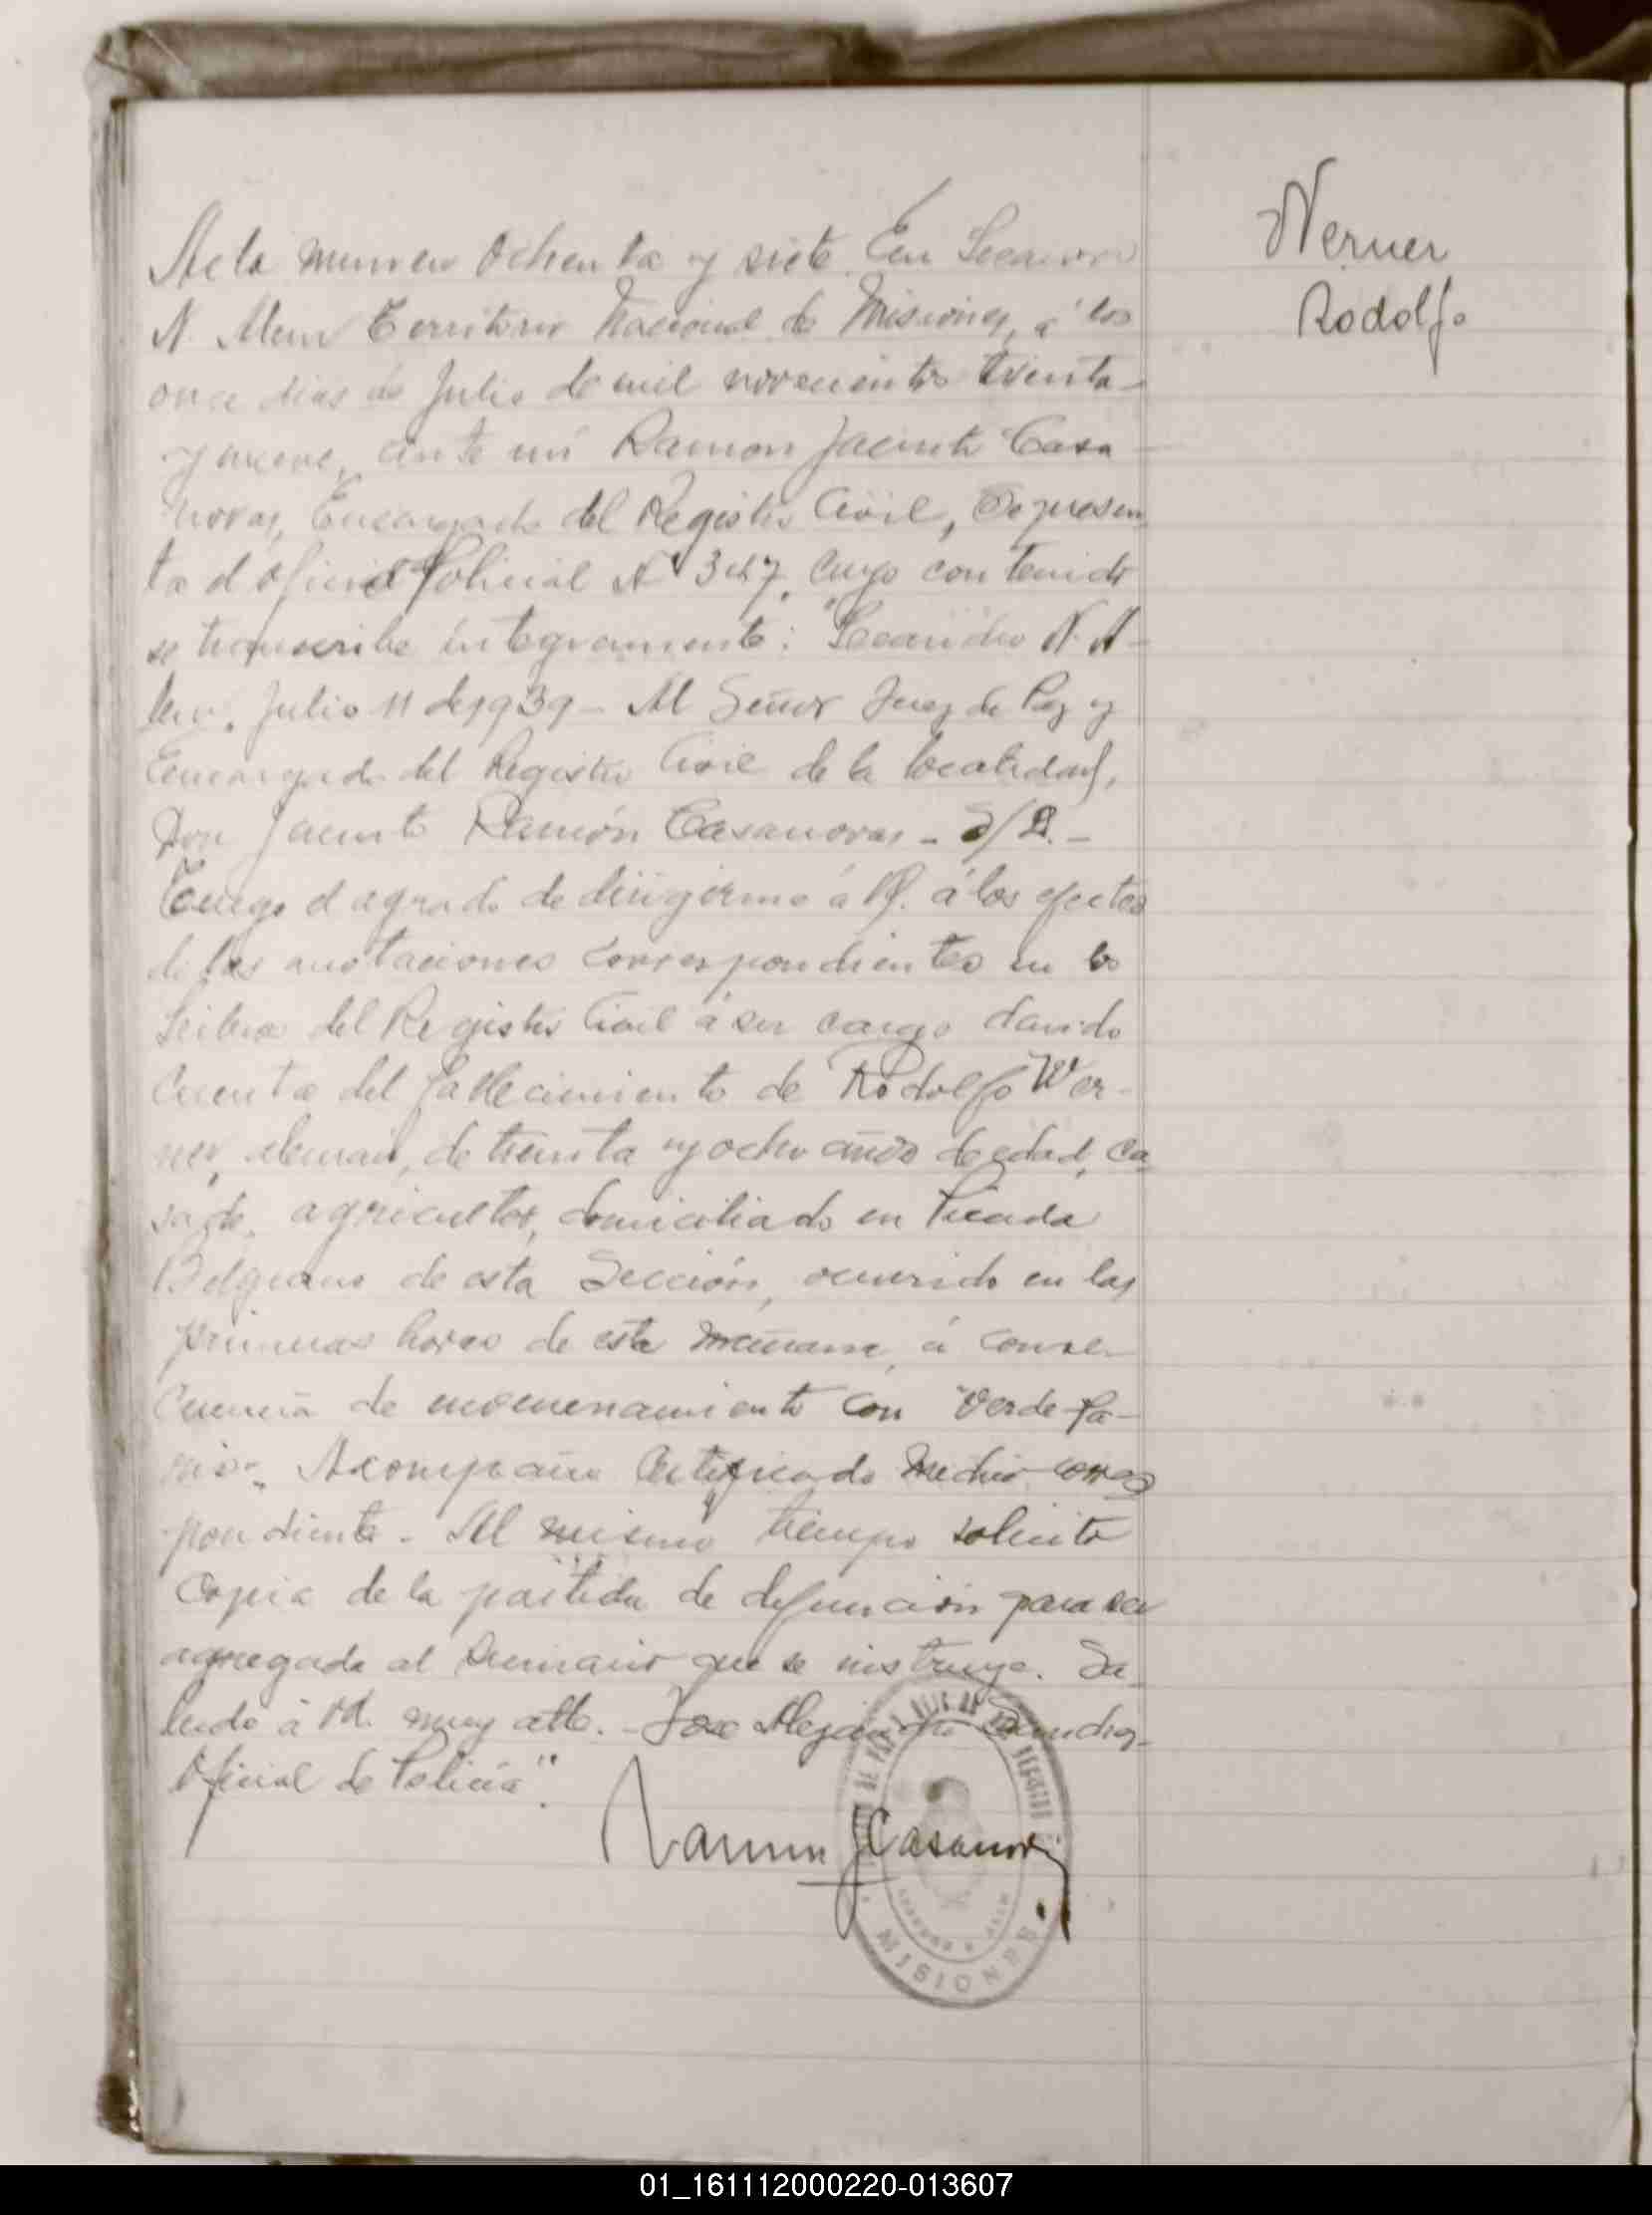 Werner
Rodolfo
Acta numero Ochenta y siete. En Leandro
N. Alem Territorio Nacional de Misiones, á los
once dias de Julio de mil novecientos treinta
y nueve, ante mi Ramon Jacinto Casa
novas, Encargado del Registro Civil, Se presen
ta el oficio Policial Nº 347, cuyo contenido
se transcribe integramente: "Leandro N. A-
lem. Julio 11 de 1939 - Al Señor Juez de Paz y
Encargado del Registro Civil de la localidad,
Don Jacinto Ramón Casanovas - S/D. -
Tengo el agrado de dirigirme á Vd. á los efectos
de las anotaciones correspondientes en los
Libros del Registro Civil á su cargo dando
cuenta del fallecimiento de Rodolfo Wer-
ner, aleman, de treinta y ocho años de edad, ca
sado, agricultor, domiciliado en Picada
Belgrano de esta Sección, ocurrido en las
primeras horas de esta mañana, á conse-
cuencia de envenenamiento con "Verde Pa-
ris". Acompaño Certificado Medico corres
pondiente. - Al mismo tiempo solicito
copia de la partida de defunción para ser
agregada al Sumario que se instruye. Sa-
ludo á Vd. muy atte. - Jose Alejandro
Oficial de Policía".
Ramon J Casanovas
MISIONES
01_161112000220-013607